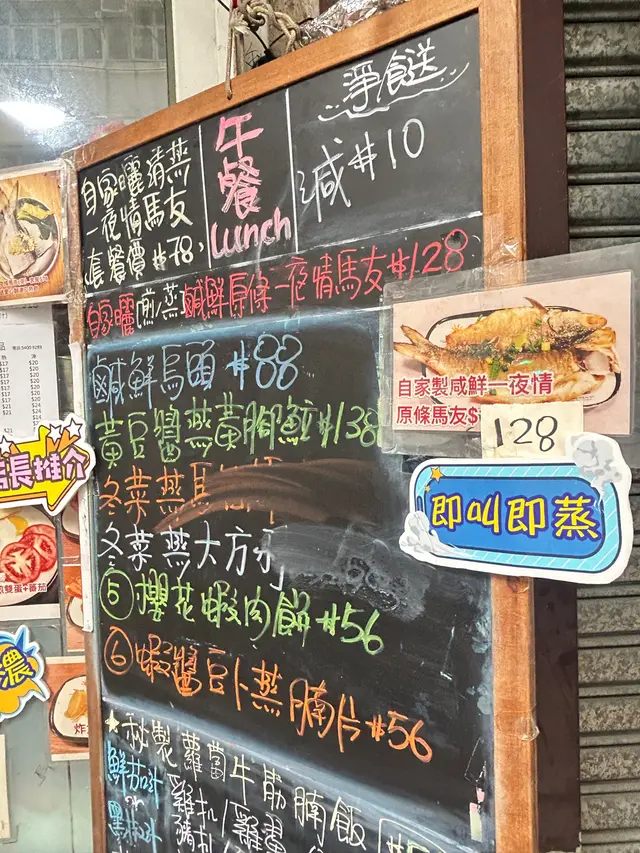 自家曬清蒸
一夜情馬友
套餐價 #78,
午餐
Lunch
淨餸
減#10
自家曬煎/蒸鹹鮮原條一夜情馬友#128
鹹鮮烏頭 #88
黃豆醬蒸黃腳鱲#138
冬菜蒸
冬菜蒸大方
⑤櫻花蝦肉餅#56
⑥蝦醬豆卜蒸腩片#56
★秘製蘿蔔牛筋腩飯
鮮茄汁
黑椒汁
雞扒
豬扒
自家製咸鮮一夜情
原條馬友$
128
即叫即蒸
長推介
雙蛋+蕃茄
濃
炸